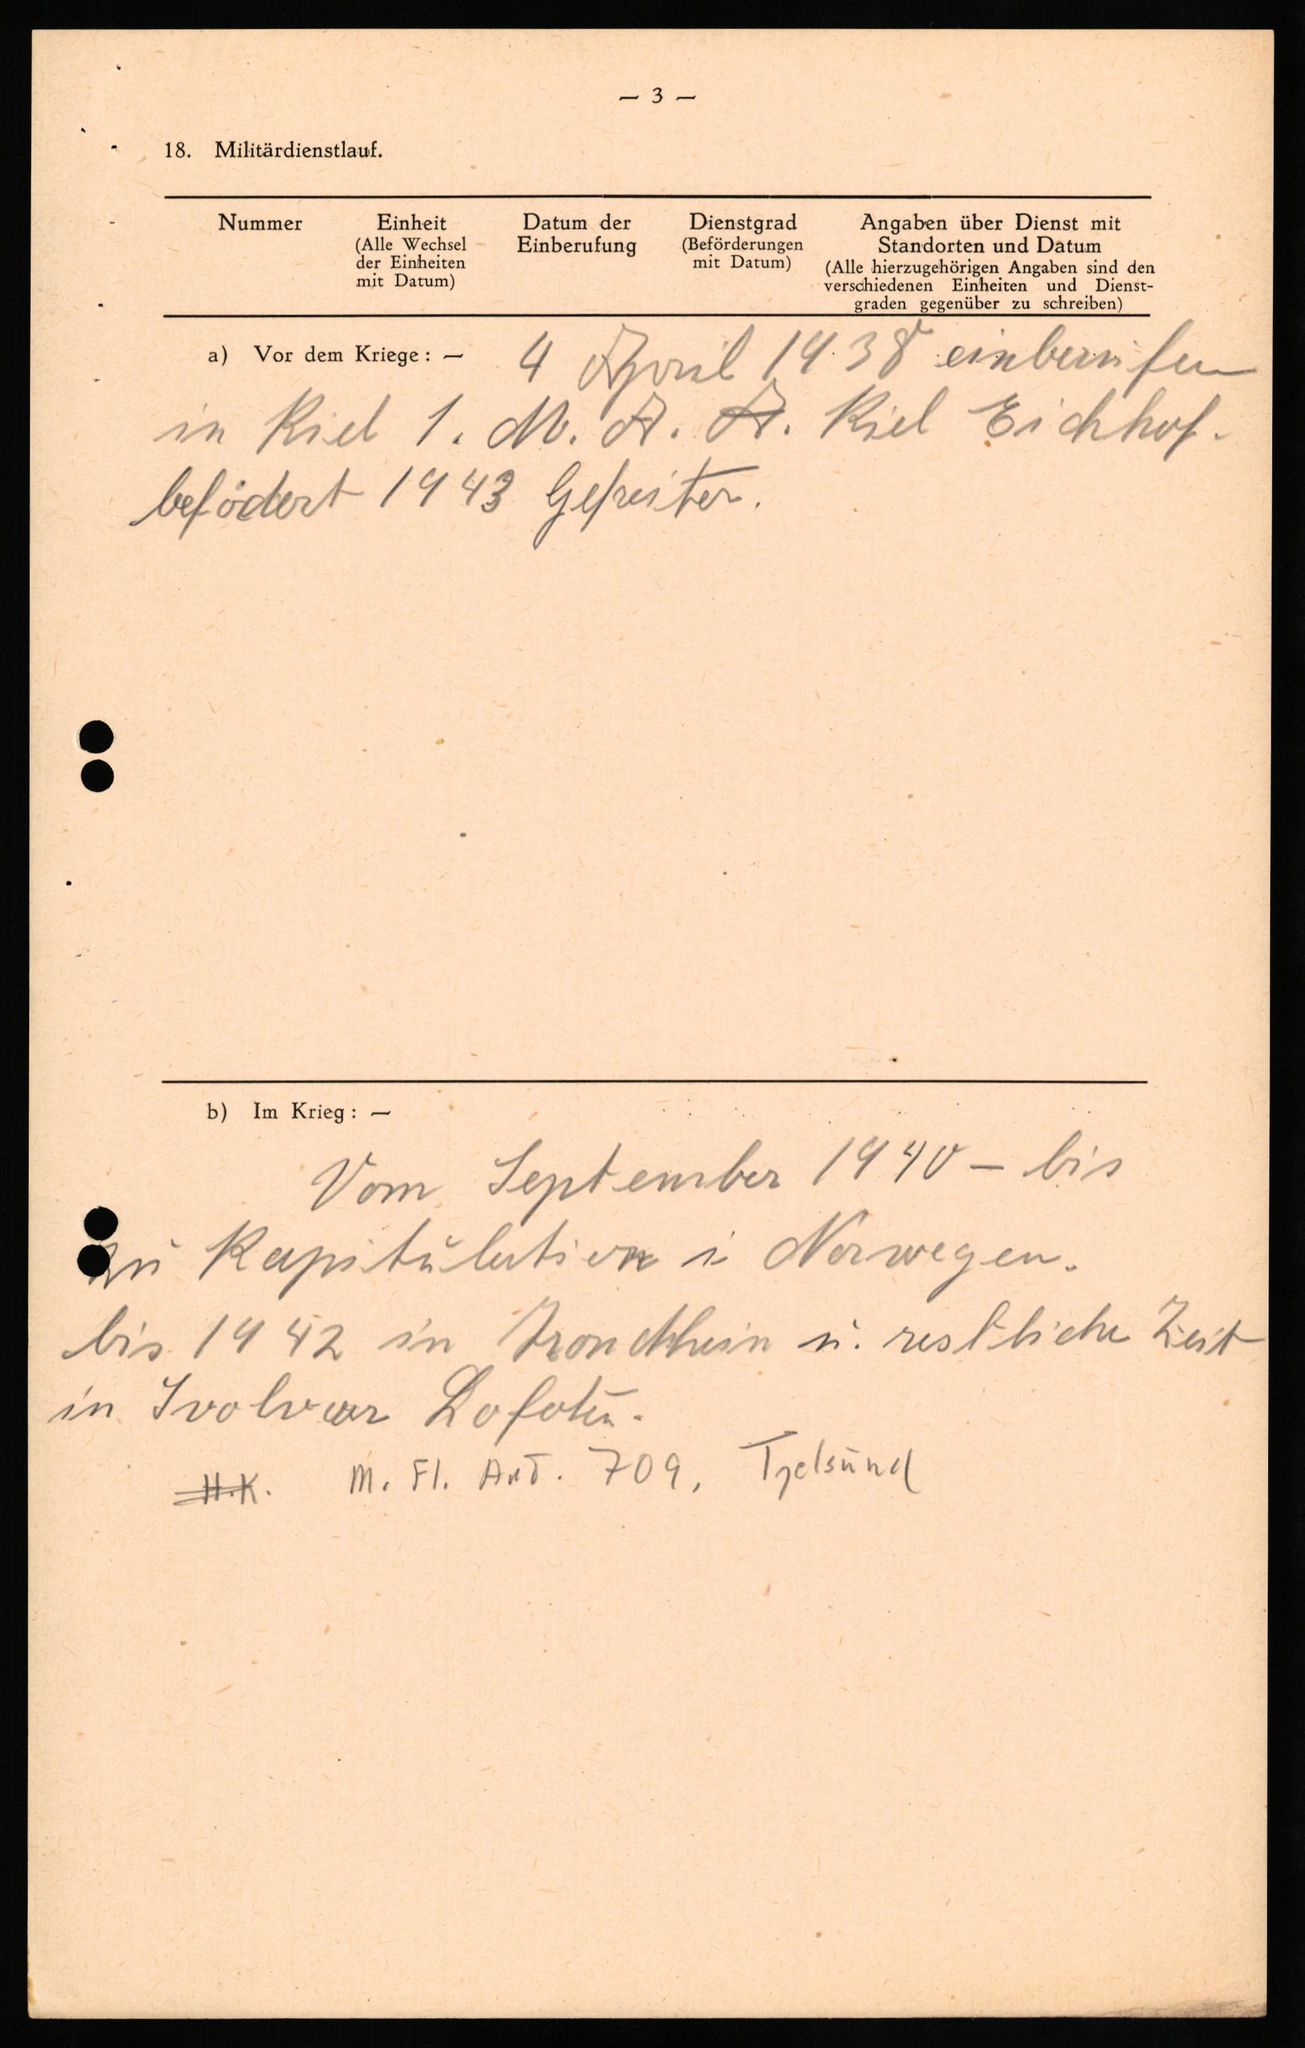 — 3 —
18. Militärdienstlauf.
Nummer
Einheit
(Alle Wechsel
der Einheiten
mit Datum)
Datum der
Einberufung
Dienstgrad
(Beförderungen
mit Datum)
Angaben über Dienst mit
Standorten und Datum
(Alle hierzugehörigen Angaben sind den
verschiedenen Einheiten und Dienst-
graden gegenüber zu schreiben)
a) Vor dem Kriege: — 4 April 1938 einberufen
in Kiel 1. M. A. A. Kiel Eichhof.
befödert 1943 Gefreiter.
b) Im Krieg: —
Vom September 1940 – bis
zu Kapitulation i Norwegen.
bis 1942 in Trondhein u. restliche Zeit
in Svolvaer Lofoten.
H.K. M. Fl. Art. 709, Tjelsund